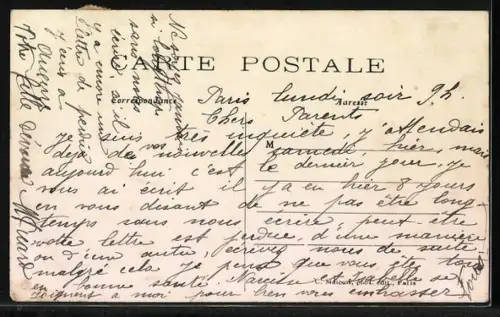 CARTE POSTALE
Correspondance
Adresse
Paris lundi soir 9 h.
Chers Parents
M
je suis très inquiète, j'attendais
déjà de vos nouvelles samedi, hier, mais
aujourd'hui c'est le dernier jour, je
vous ai écrit il y a eu hier 8 jours
en vous disant de ne pas être long-
temps sans nous écrire, peut être
votre lettre est perdue, d'une manière
ou d'une autre, écrivez nous de suite
malgré cela je pense que vous êtes tous
en bonne santé. Narcisse et Isabelle se
joignent à moi pour bien vous embrasser
édit., Paris
sans nous
écrire s'il
y a encore une
lettre de perdue
Votre fille dévouée